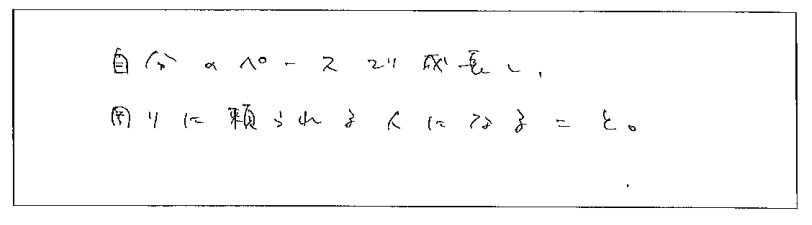 自分のペースで成長し、
周りに頼られる人になること。